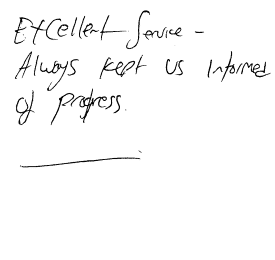 Excellent Service -
Always kept us informed
of progress.